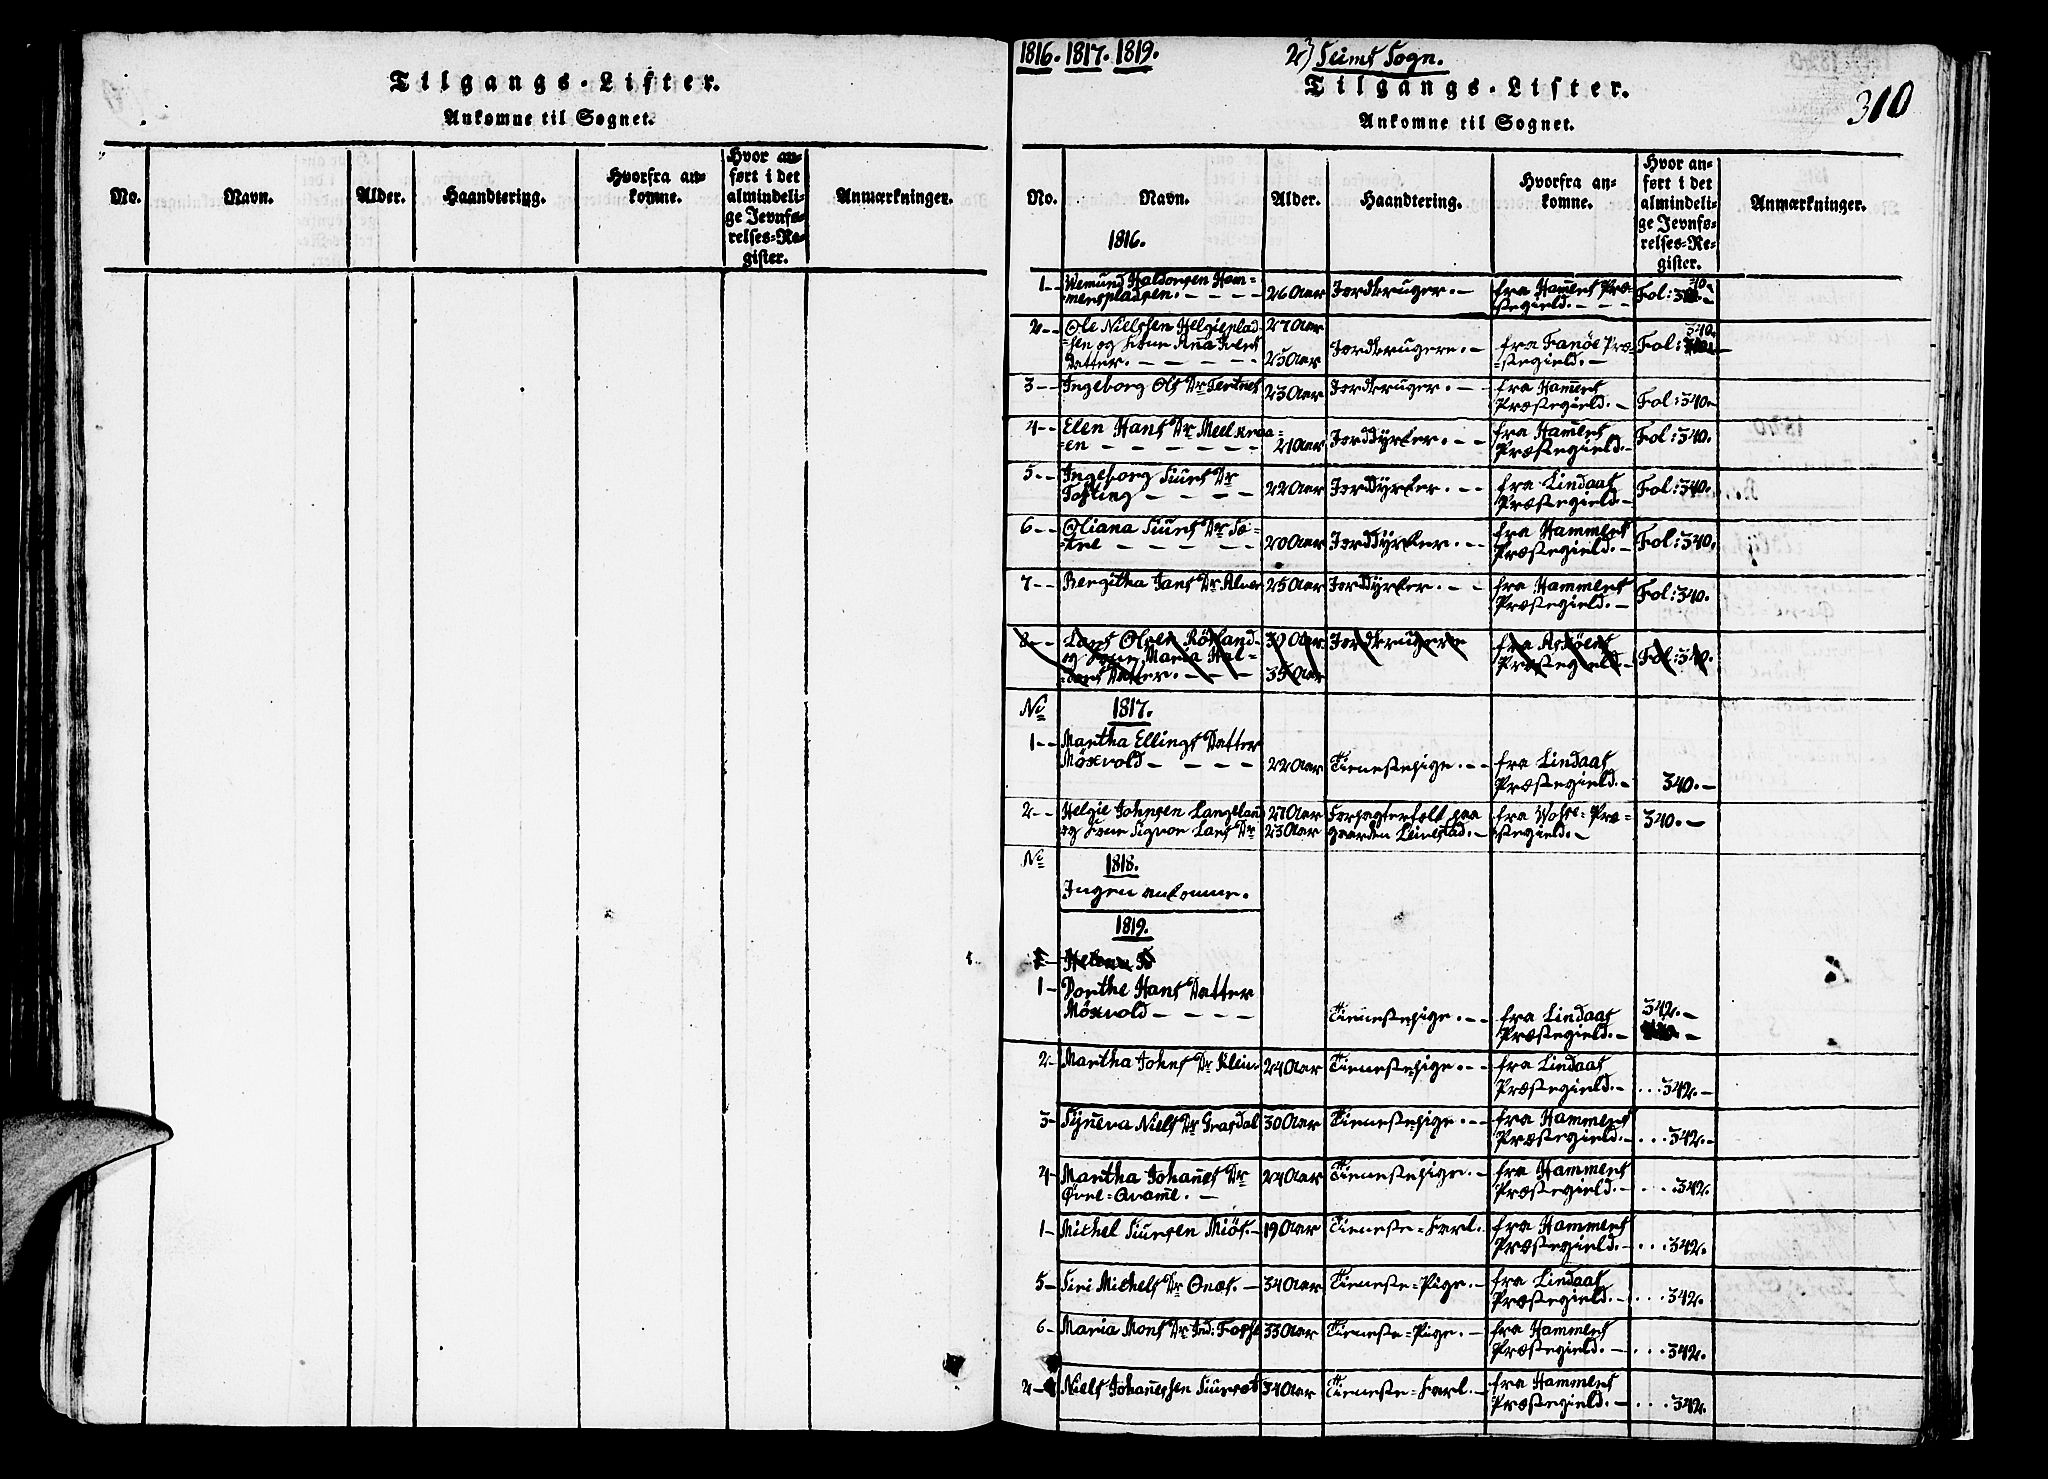 Tilgangs-Lister.
Ankomne til Sognet.
No.
Navn.
Alder.
Haandtering.
Hvorfra an-
komne.
Hvor an-
ført i det
almindeli-
ge Jevnfø-
relses-Re-
gister.
Anmærkninger.
1816. 1817. 1819.
2) Seims Sogn.
Tilgangs-Lister.
310
Ankomne til Sognet.
No.
Navn.
Alder.
Haandtering.
Hvorfra an-
komne.
Hvor an-
ført i det
almindeli-
ge Jevnfø-
relses-Re-
gister.
Anmærkninger.
1816.
1-- Wemund Haldorsen Ham-
menspladsen. - - - - 26 Aar Jordbruger. - fra Hammers Præ-
stegield. - - - Fol: 340.-
2-- Ole Nielssen Helgieplad- 27 Aar
=sen og Kone Anna Ivers
Datter. - - - - - 25 Aar Jordbrugere. - fra Fanöe Præ-
=stegield. - Fol: 340.
3-- Ingeborg Ols Dr Tertnes 23 Aar Jordbruger. - - fra Hammers
Præstegield. - Fol: 340.-
4-- Elen Hans Dr Meelkraa-
=en - - - - - - 21 Aar Jorddÿrker. - - - fra Hammers
Præstegield. - Fol: 340.
5-- Ingeborg Siurs Dr
Tofting - - - - 22 Aar Jorddÿrker. - - - fra Lindaas
Præstegield. - Fol: 340.
6-- Oliana Siurs Dr Sæ-
=tre - - - - - 20 Aar Jorddÿrker. - - fra Hammers
Præstegield. - Fol: 340.
7-- Bergitha Jans Dr Alver 25 Aar Jorddÿrker. - - fra Hammers
Præstegield. - Fol: 340.
8-- Lars Olsen Röskland- 39 Aar. Jordbrugere fra Asköens
og Kone Maria Hal-
=dors Datter. - - - 35 Aar Præstegield. - Fol: 340.
No 1817.
1-- Martha Ellings Datter
Möxvold - - - - 22 Aar Tienestepige. - - fra Lindaas
Præstegield. - 340. -
2-- Helgie Johnsen Langeland 27 Aar Forpagterfolk paa fra Woss-Præ-
og Kone Signor Lars Dr 23 Aar gaarden Leinestad. - stegield. - 340. -
No 1818.
Ingen ankomne.
1819.
1- Dorthe Hans Datter
Möxvold - - - - Tienestepige. - - fra Lindaas
Præstegield. - 342. -
2- Martha Johns Dr Klein. 24 Aar Tienestepige. - - fra Lindaas
Præstegield. - ...342. -
3- Sÿneva Niels Dr Grasdal 30 Aar Tienestepige. - - fra Hammers
Præstegield. - ...342. -
4- Martha Johannes Dr 24 Aar Tienestepige. - fra Hammers
Øvre=Qvamme. - Præstegield. - ...342.
1- Michel Siursen Miös. - 19 Aar Tieneste=Karl. fra Hammers
Præstegield. - ...342.
5- Siri Michels Dr Onæs. - 34 Aar Tieneste=Pige. - fra Lindaas
Præstegield. - ...342.
6- Maria Mons Dr Ind: Fosse 33 Aar Tieneste=Pige. - fra Hammers
Præstegield. - ...342.
2- Niels Johannessen Siursæt 34 Aar Tieneste=Karl. - fra Hammers
Præstegield. - ...342.